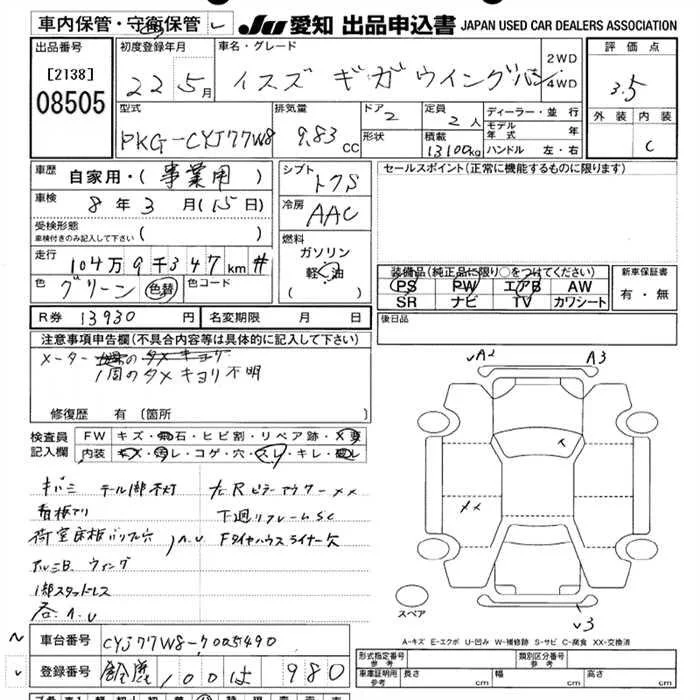 車内保管・守衛保管 レ JU 愛知 出品申込書 JAPAN USED CAR DEALERS ASSOCIATION
出品番号 初度登録年月 車名・グレード 評価点
[2138] 22 5月 イスズ ギガ ウイングバン 2WD 4WD 3.5
08505
型式 排気量 ドア 定員 ディーラー・並行 外装 内装
PKG-CYJ77W8 9.83cc 2 2人 モデル年式 年 C
形状 積載 13100kg ハンドル 左・右
車歴 自家用・( 事業用 ) シフト トク5 セールスポイント(正常に機能するものに限ります)
車検 8年3月(15日) 冷房 AAC
受検形態
車検付きのみ記入して下さい ( )
燃料
走行 104万9千347km # ガソリン
軽油
( )
装備品(純正品に限り○をつけてください) 新車保証書
色 グリーン 色替 色コード PS PW エアB AW 有・無
SR ナビ TV カワシート
R券 13930円 名変期限 月 日 後日品
注意事項申告欄(不具合内容等は具体的に記入して下さい)
メーター
1周のタメ キョリ不明
修復歴 有 (箇所 )
A2 A3
検査員 FW キズ・飛石・ヒビ割・リペア跡・X要
記入欄 内装 キズ・汚レ・コゲ・穴・スレ・キレ・破レ
キバミ テール1部不灯 左RピラーアウターXX
看板アリ 下廻リフレームSC
荷室床板パッチ穴 Fタイヤハウスライナー欠
アルミB ウィング
1部スタットレス
XX
スペア
3
A-キズ E-エクボ U-凹み W-補修跡 S-サビ C-腐食 XX-交換済
車台番号 CYJ77W8-7005490
登録番号 鈴鹿 100 は 980
形式指定番号 参考 類別区分番号 参考
車庫証明用 参考 長さ cm 幅 cm 高さ cm